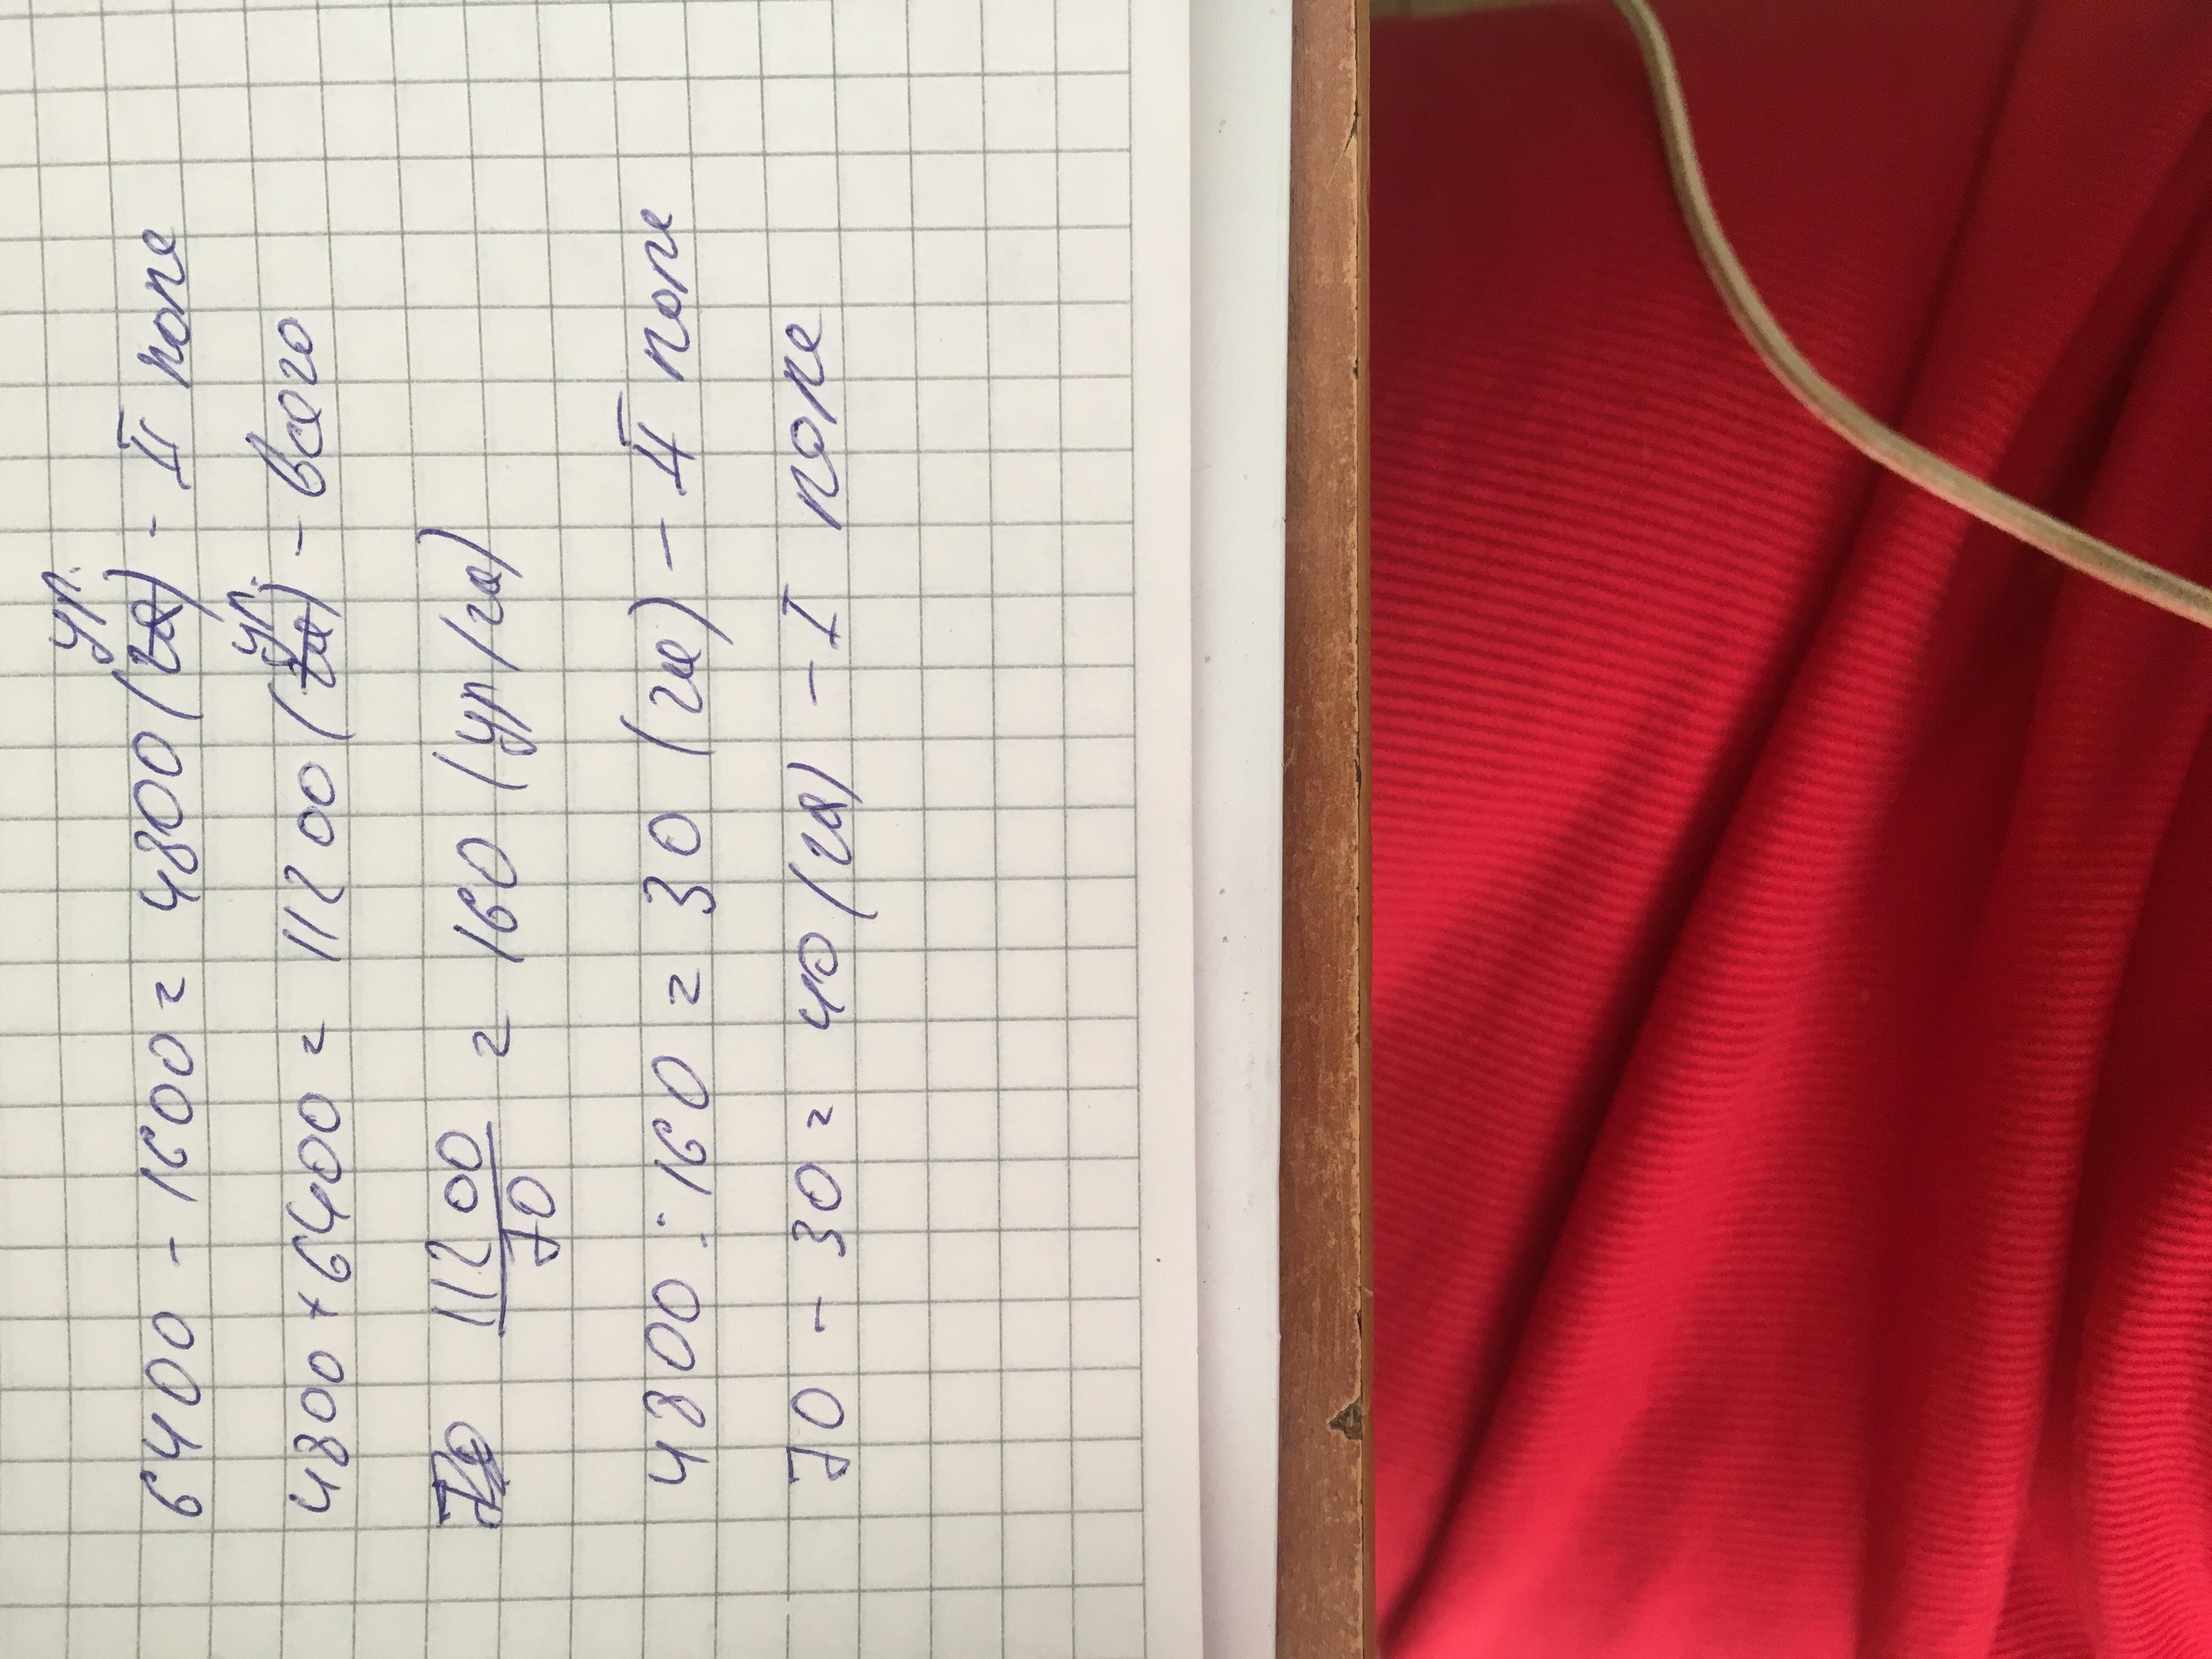 6400 - 1600 = 4800 (га) ур. - II поле
4800 + 6400 = 11200 (га) ур. - всего
11200/70 = 160 (ур/га)
4800 : 160 = 30 (га) - II поле
70 - 30 = 40 (га) - I поле